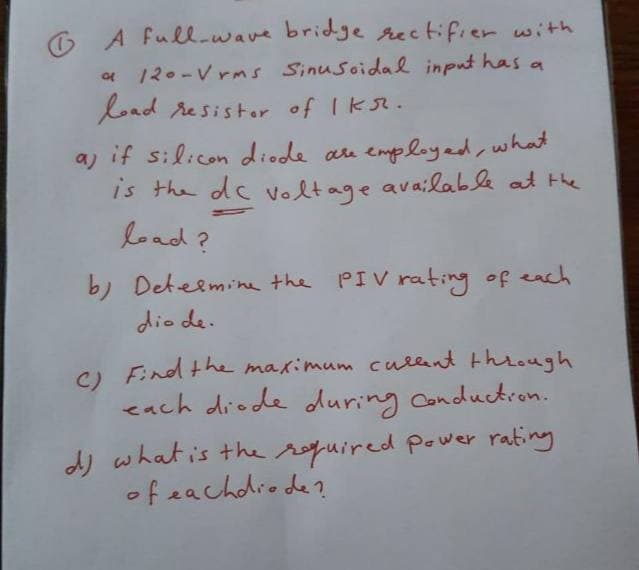 ① A full-wave bridge rectifier with
a 120-Vrms sinusoidal input has a
load resistor of 1kΩ.
a) if silicon diode are employed, what
is the dc voltage available at the
load?
b) Determine the PIV rating of each
diode.
c) Find the maximum current through
each diode during conduction.
d) what is the required power rating
of each diode?